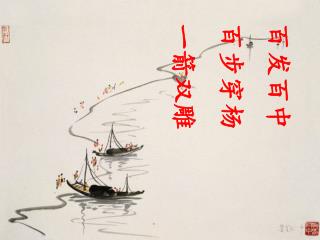 百发百中
百步穿杨
一箭双雕